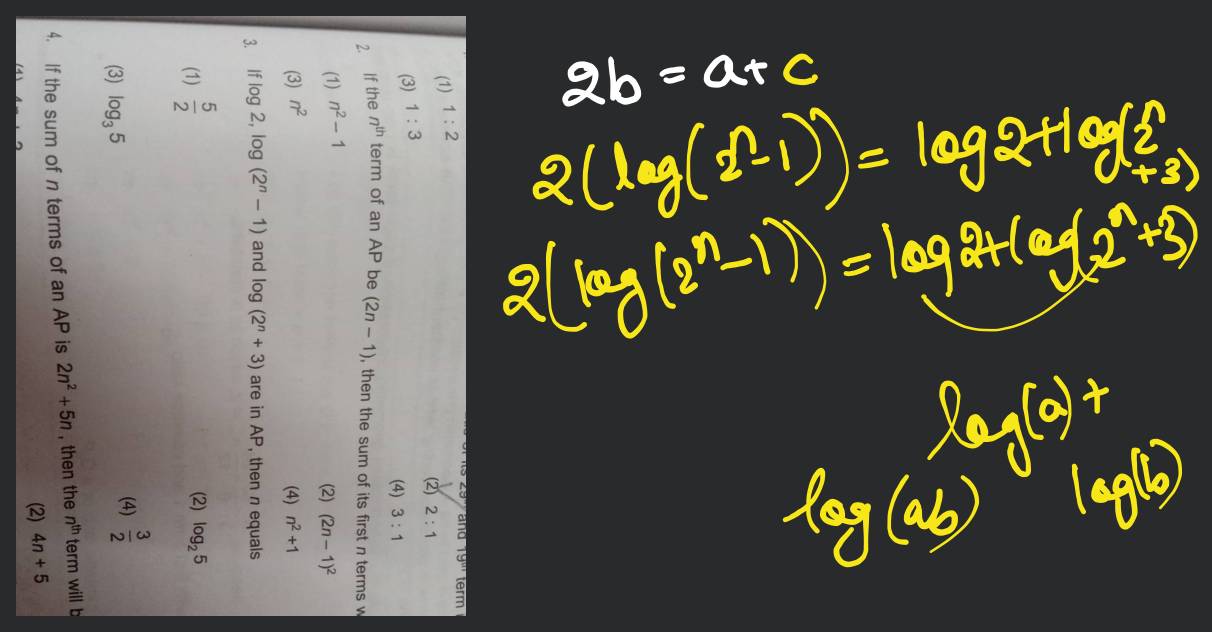 (1) 1 : 2
(2) 2 : 1
(3) 1 : 3
(4) 3 : 1
2. If the nᵗʰ term of an AP be (2n – 1), then the sum of its first n terms
(1) n² – 1
(2) (2n – 1)²
(3) n²
(4) n² +1
3. If log 2, log (2ⁿ – 1) and log (2ⁿ + 3) are in AP, then n equals
(1) 5/2
(2) log₂ 5
(3) log₃ 5
(4) 3/2
4. If the sum of n terms of an AP is 2n² + 5n, then the nᵗʰ term will
(2) 4n + 5
2b = a + c
2(log(2ⁿ-1)) = log2+log(2ⁿ
+3)
2(log(2ⁿ-1)) = log2+log(2ⁿ+3)
log(a)+
log(b)
log(ab)